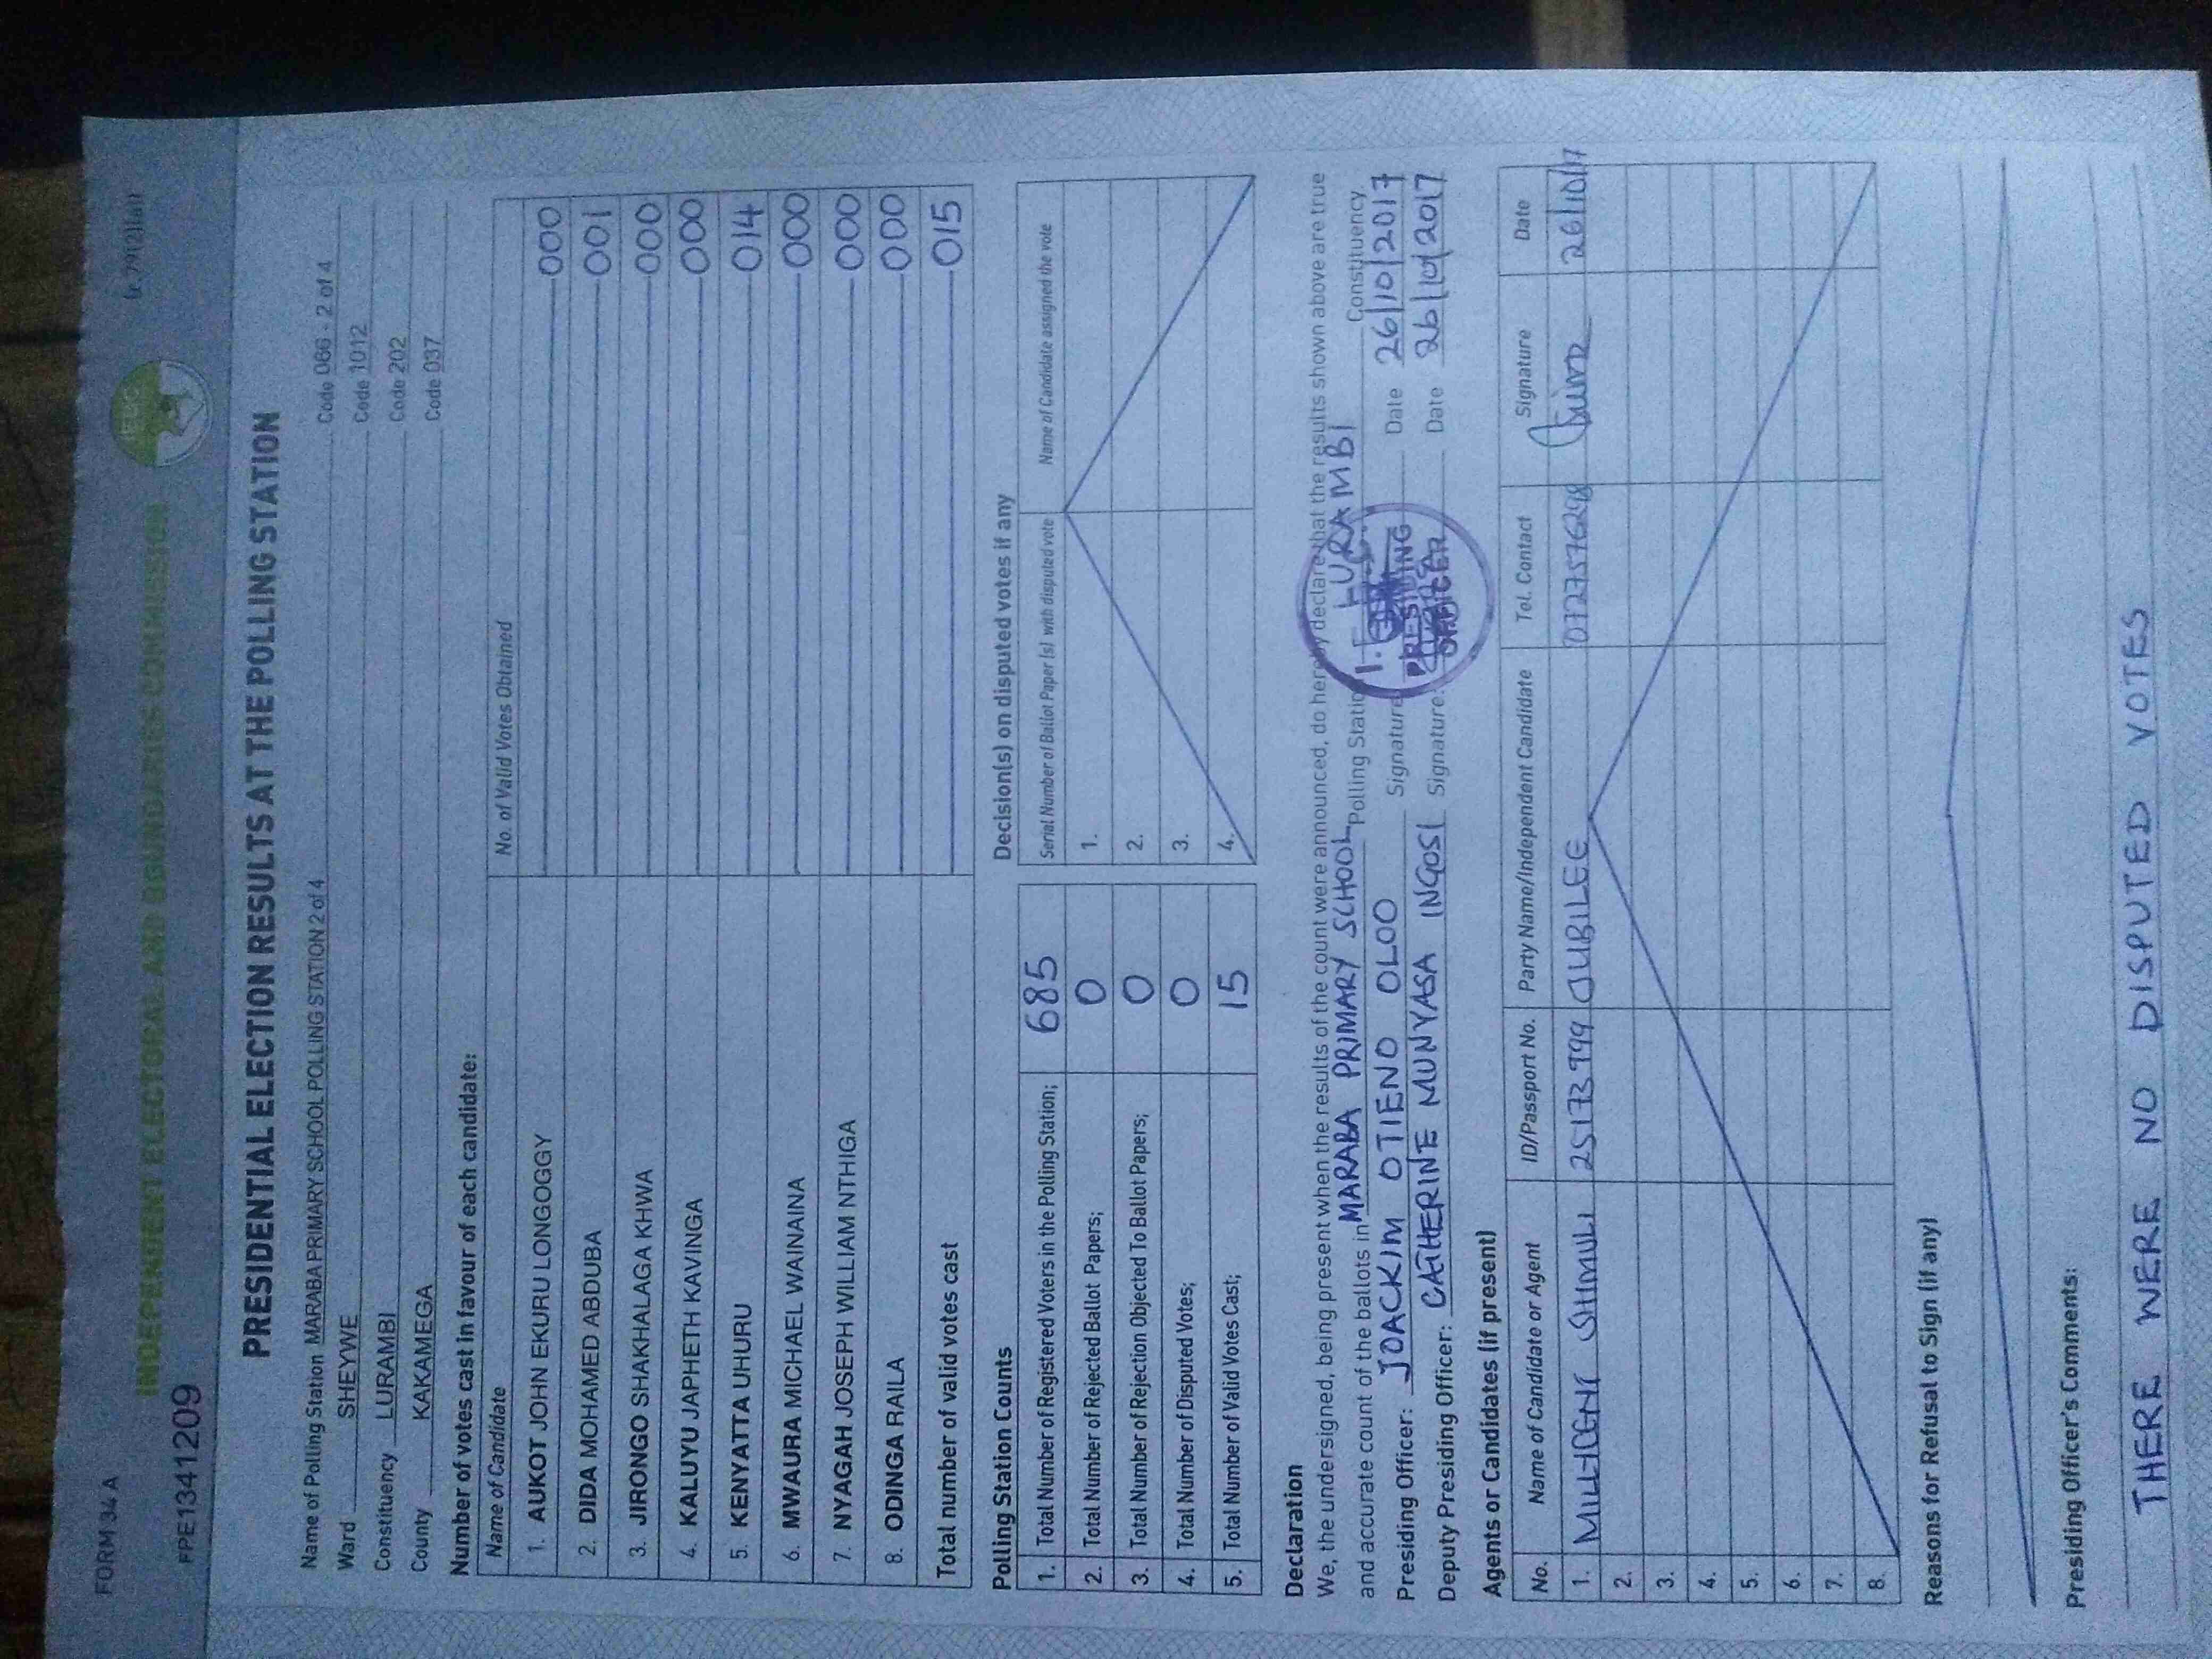 FORM 34 A
(r.79(2)(a))
INDEPENDENT ELECTORAL AND BOUNDARIES COMMISSION
IEBC
FPE1341209
PRESIDENTIAL ELECTION RESULTS AT THE POLLING STATION
Name of Polling Station MARABA PRIMARY SCHOOL POLLING STATION 2 of 4 Code 066 - 2 of 4
Ward SHEYWE Code 1012
Constituency LURAMBI Code 202
County KAKAMEGA Code 037
Number of votes cast in favour of each candidate:
Name of Candidate No. of Valid Votes Obtained
1. AUKOT JOHN EKURU LONGOGGY 000
2. DIDA MOHAMED ABDUBA 001
3. JIRONGO SHAKHALAGA KHWA 000
4. KALUYU JAPHETH KAVINGA 000
5. KENYATTA UHURU 014
6. MWAURA MICHAEL WAINAINA 000
7. NYAGAH JOSEPH WILLIAM NTHIGA 000
8. ODINGA RAILA 000
Total number of valid votes cast 015
Polling Station Counts
1. Total Number of Registered Voters in the Polling Station; 685
2. Total Number of Rejected Ballot Papers; 0
3. Total Number of Rejection Objected To Ballot Papers; 0
4. Total Number of Disputed Votes; 0
5. Total Number of Valid Votes Cast; 15
Decision(s) on disputed votes if any
Serial Number of Ballot Paper (s) with disputed vote Name of Candidate assigned the vote
1.
2.
3.
4.
Declaration
We, the undersigned, being present when the results of the count were announced, do hereby declare that the results shown above are true
and accurate count of the ballots in MARABA PRIMARY SCHOOL Polling Station LURAMBI Constituency
Presiding Officer: JOACKIM OTIENO OLOO Signature Date 26/10/2017
Deputy Presiding Officer: CATHERINE MUNYASA INGOSI Signature Date 26/10/2017
PRESIDING
OFFICER
Agents or Candidates (if present)
No. Name of Candidate or Agent ID/Passport No. Party Name/Independent Candidate Tel. Contact Signature Date
1. SHIMULI 25173799 JUBILEE 26/10/17
2.
3.
4.
5.
6.
7.
8.
Reasons for Refusal to Sign (if any)
Presiding Officer's Comments:
THERE WERE NO DISPUTED VOTES